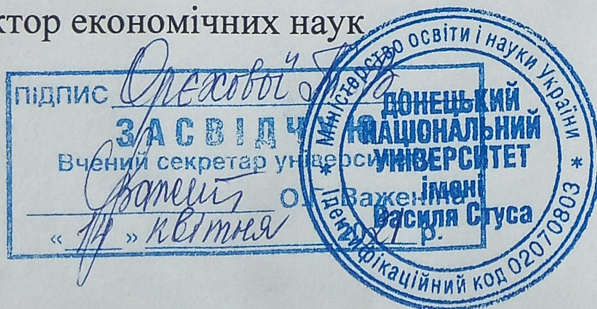 ктор економічних наук
ПІДПИС Орехової
ЗАСВІДЧУЮ
Вчений секретар університету
О. Важеніна
« 14 » квітня 2021 р.
* Міністерство освіти і науки України *
Ідентифікаційний код 02070803
ДОНЕЦЬКИЙ
НАЦІОНАЛЬНИЙ
УНІВЕРСИТЕТ
імені
Василя Стуса